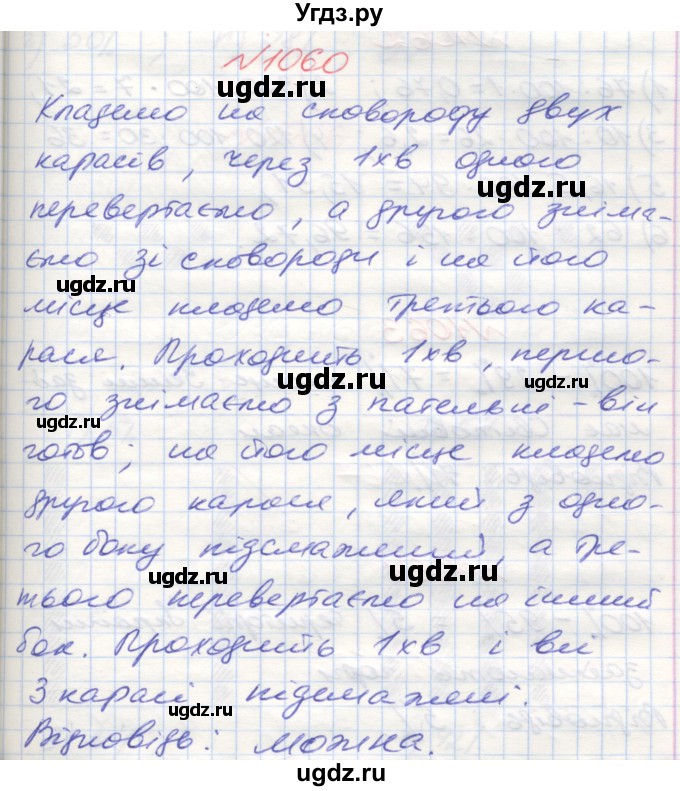 Угдз.ру
№1060
ugdz.ru
Кладемо на сковороду двух
карасів, через 1хв одного
ugdz.ru
перевертаємо, а другого зніма-
ємо зі сковороди і на його
ugdz.ru
місце кладемо третього ка-
рася. Проходить 1хв, першо-
ugdz.ru
го знімаємо з пательні - він
ugdz.ru
готов; на його місце кладемо
другого карася, який з одно-
ugdz.ru
го боку підсмажений, а тре-
ugdz.ru
ugdz.ru
тього перевертаємо на інший
бок. Проходить 1хв і всі
3 карасі підсмажені.
ugdz.ru
Відповідь: можна.
ugdz.ru
ugdz.ru